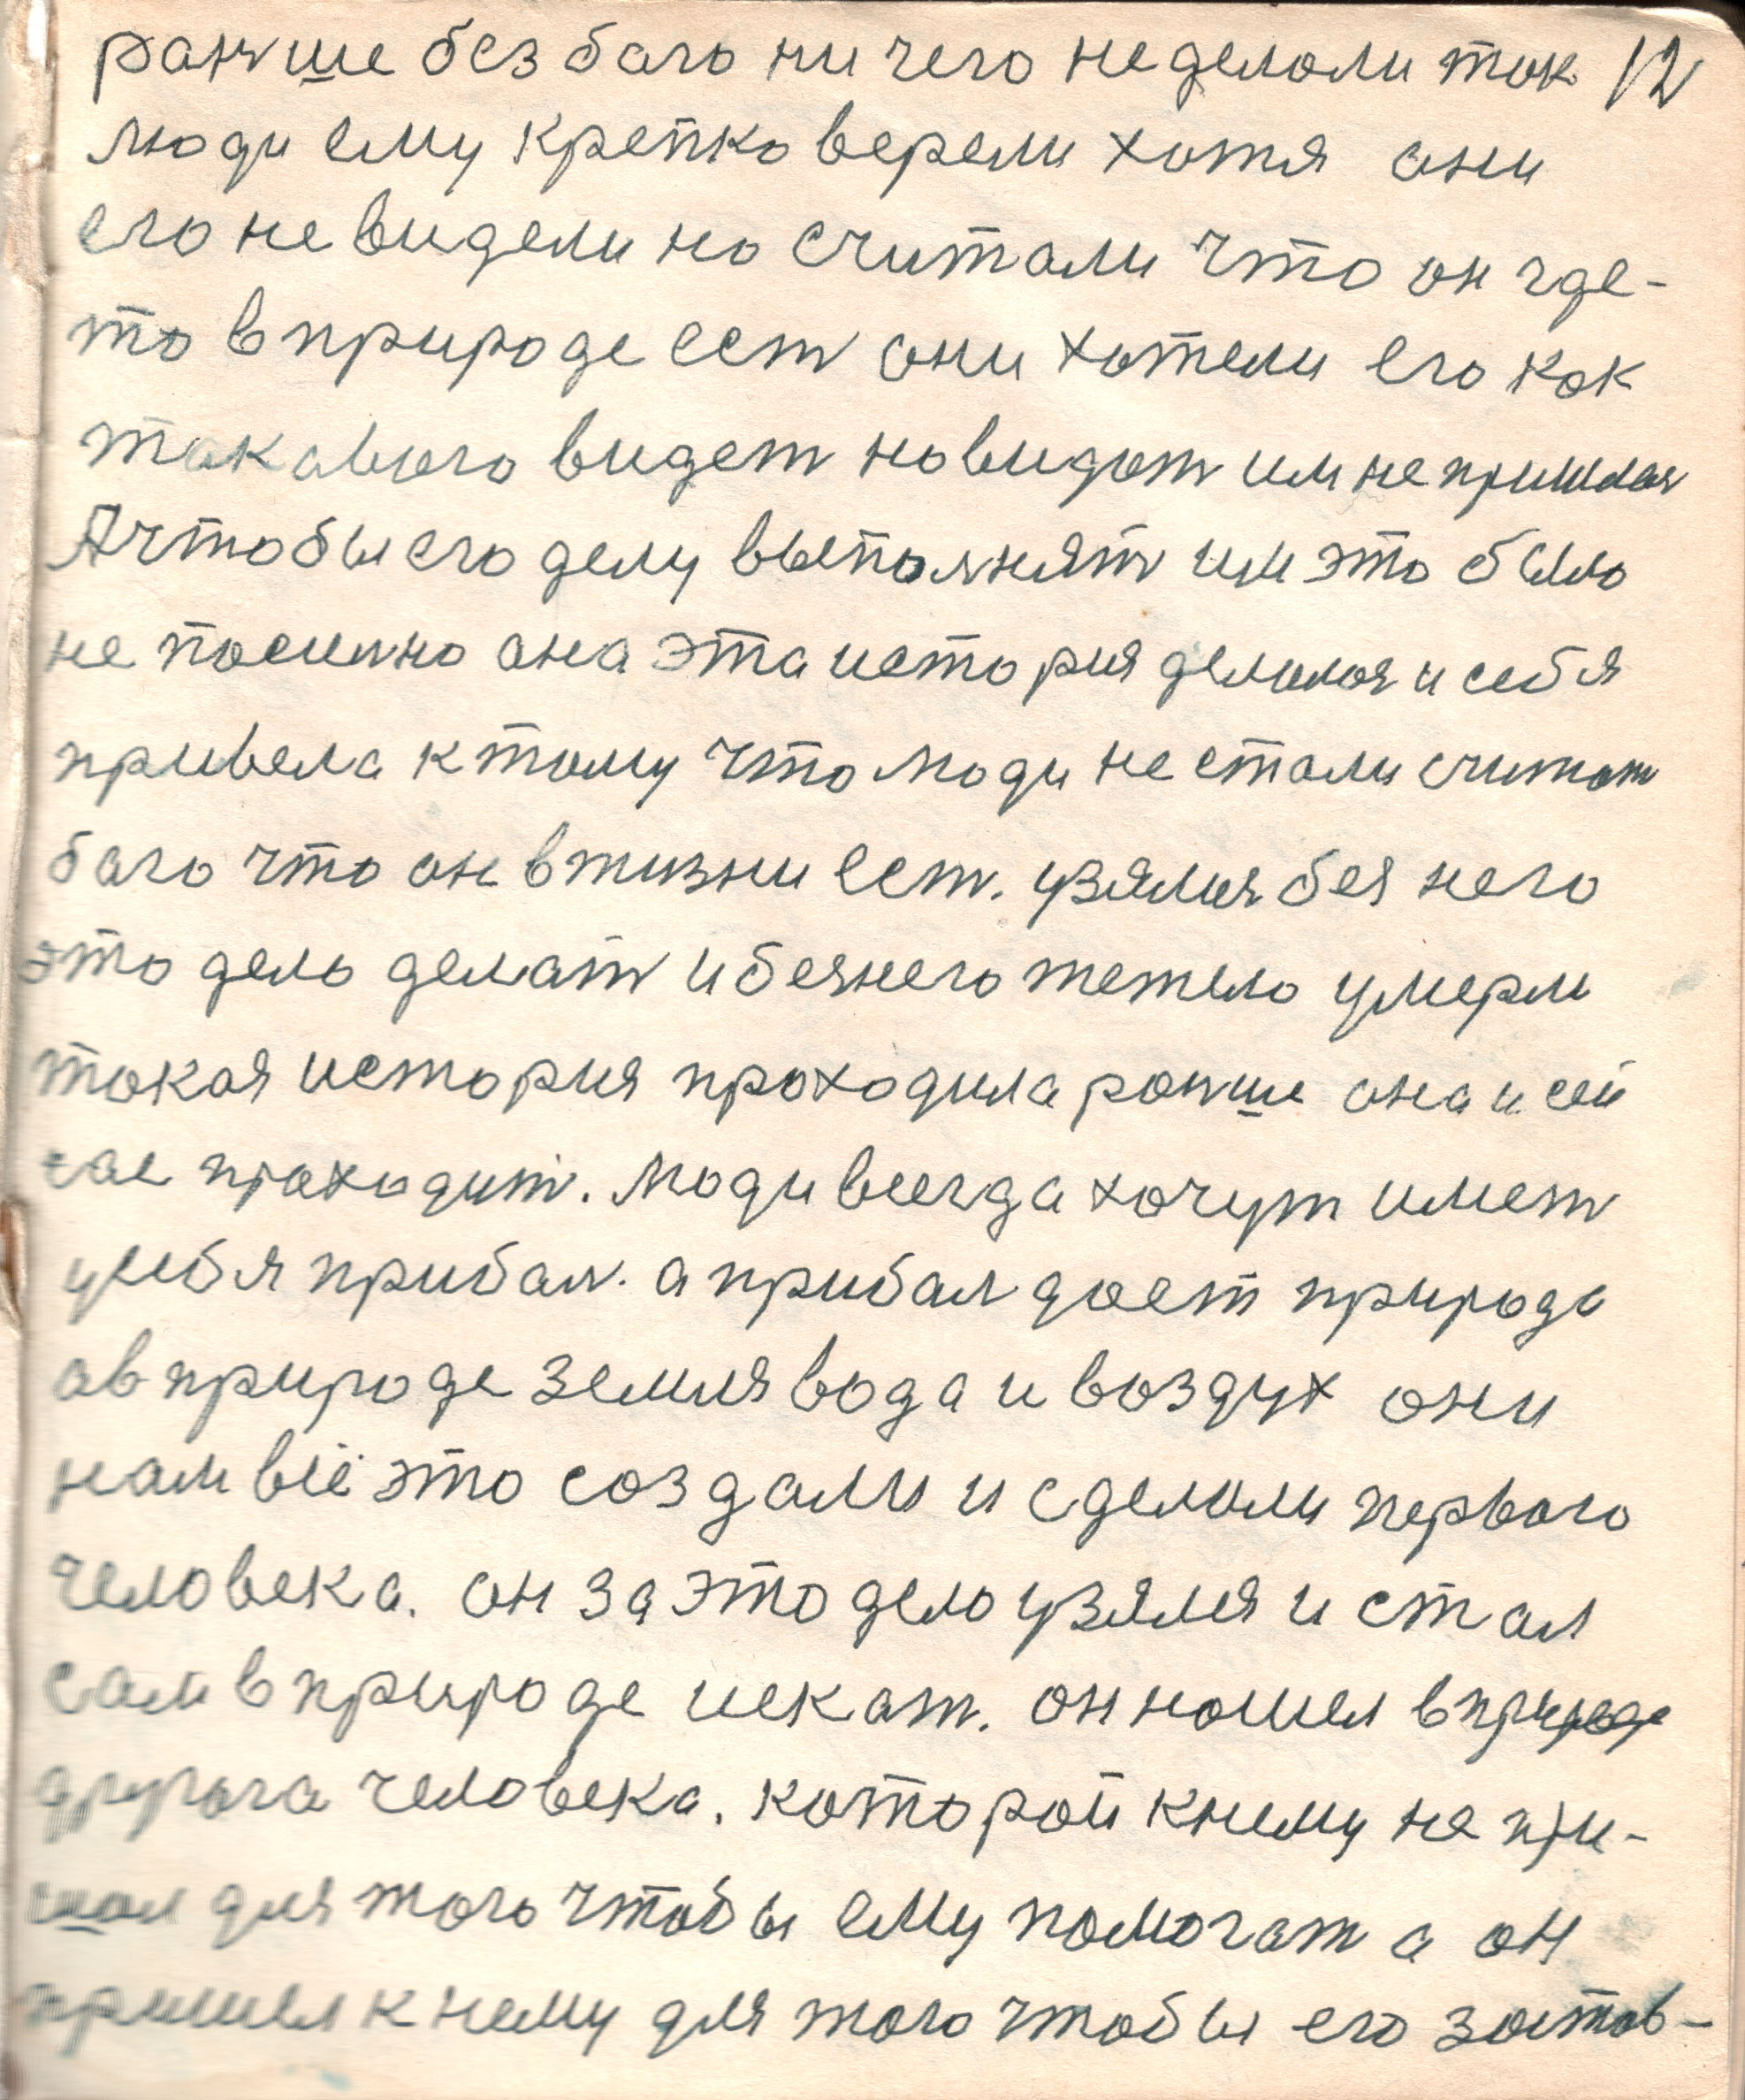 раньше без баго ни чего неделоли ток 12
люди ему крепко верели хотя они
его не видели но считали что он где-
то в природе ест они хотели его как
такавого видет но видат им не пришлося
А чтобы его делу выполнят им это было
не посилно она эта история делилася и себя
привела к тому что люди не стали считат
баго что он в жизни ест. узялися бея него
это дело делат и беянего тежело умерли
токая история проходила раньше она и сей
час праходит. Люди всегда хочут имет
у себя прибал. а прибал доет природа
а в природе земля вода и воздух они
нам всё это создали и сделоли первого
человека. он за это дело узялся и стал
сам в природе искат. он нашел в природе
другога человека. которой кнему не при-
шол для того чтобы ему помогат а он
пришел к нему для того чтобы его застав-